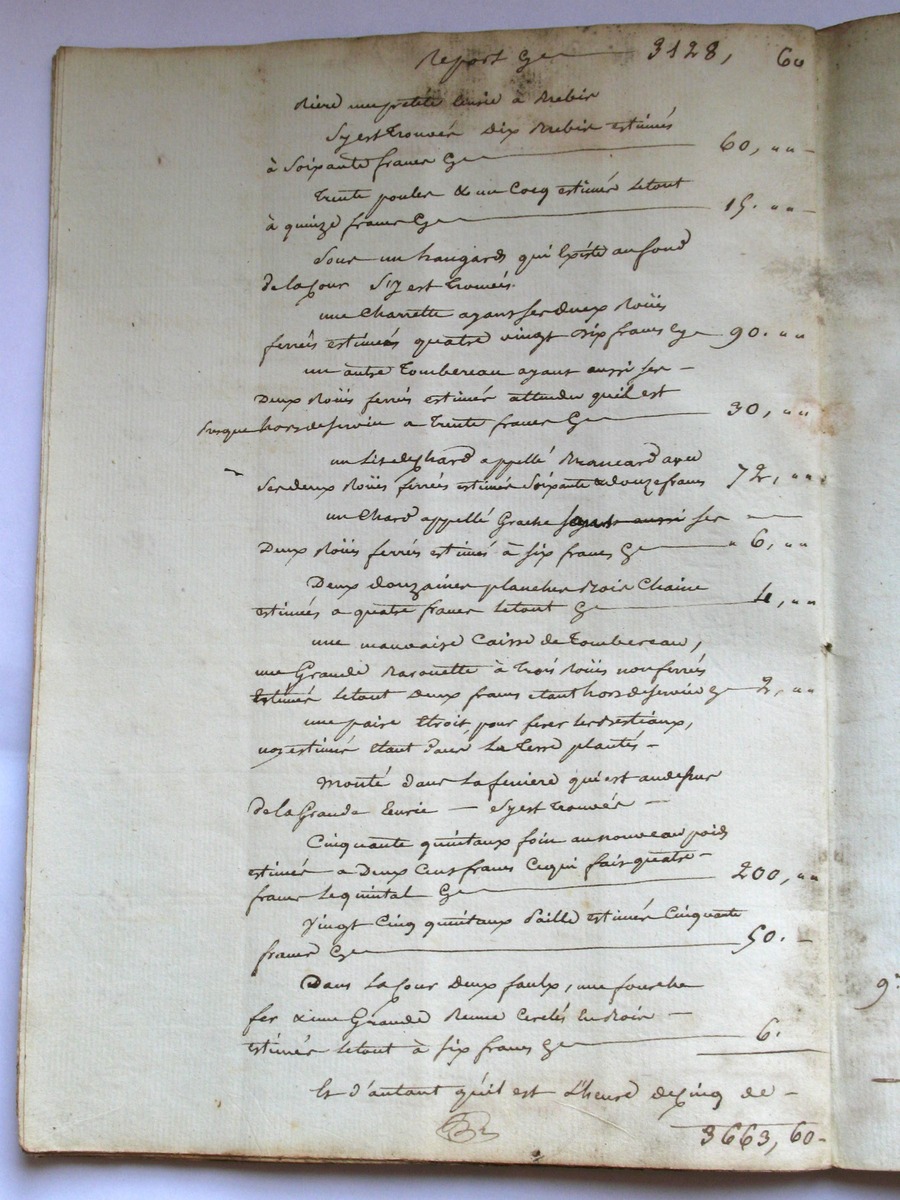 Report Cy 3128, 60
dans une petite Ecurie à Brebis
S'y est trouvés dix Brebis estimés
à Soixante francs Cy 60, " "
Trente poules & un Cocq estimés letout
à quinze francs Cy 15. " "
Sous un hangards qui Existe au fond
de la Cour S'y est trouvés.
une Charrette ayant ses deux Roües
ferrés estimés quatre vingt dix francs Cy 90. " "
un autre Tombereau ayant aussi ses
Deux Roües ferrés estimés attendu quil est
presque hors de service a Trente francs Cy 30, " "
un appellé Brancard avec
ses deux Roües ferrées estimés Soixante & douze francs 72, " "
un Chard appellé ayant aussi ses
Deux Roües ferrés estimés à six francs Cy " 6, " "
Deux douzaines planches Bois Chaine
estimés a quatre francs letout Cy 4, " "
une mauvaise Caisse de Tombereau,
une Grande Barouette à trois Roües non ferrés
estimés letout deux francs etant hors de service Cy 2, " "
une paire Etroit, pour ferer les Bestiaux,
non estimés etant dans La terre plantés
Monté dans La feniere qui est au dessus
de la Grande Ecurie - s'y est trouvés
Cinquante quintaux foin au nouveau poids
estimés a Deux Cens francs Ce qui fais quatre
francs Le quintal Cy 200, " "
Vingt Cinq quintaux Paille estimés Cinquante
francs Cy 50.
Dans La Cour deux faulx, une fourche
fer & une Grande Benne Cerclés En Bois
estimés letout à six francs Cy 6.
Et d'autant qu'il est L'heure de Cinq de
3663, 60